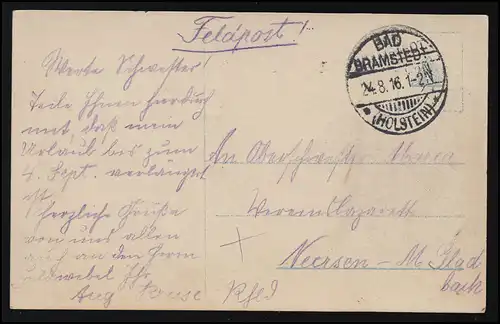 Feldpost!
BAD
BRAMSTEDT
24.8.16.1-2N
(HOLSTEIN)
Werte Schwester!
Teile Ihnen hierdurch
mit, daß mein
Urlaub bis zum
4. Sept. verlängert
ist.
Herzliche Grüße
von uns allen
auch an den Herrn
Feldwebel Ihr
Aug
An Oberschwester
Vereinslazarett
Neersen - M. Glad
bach
Rhld